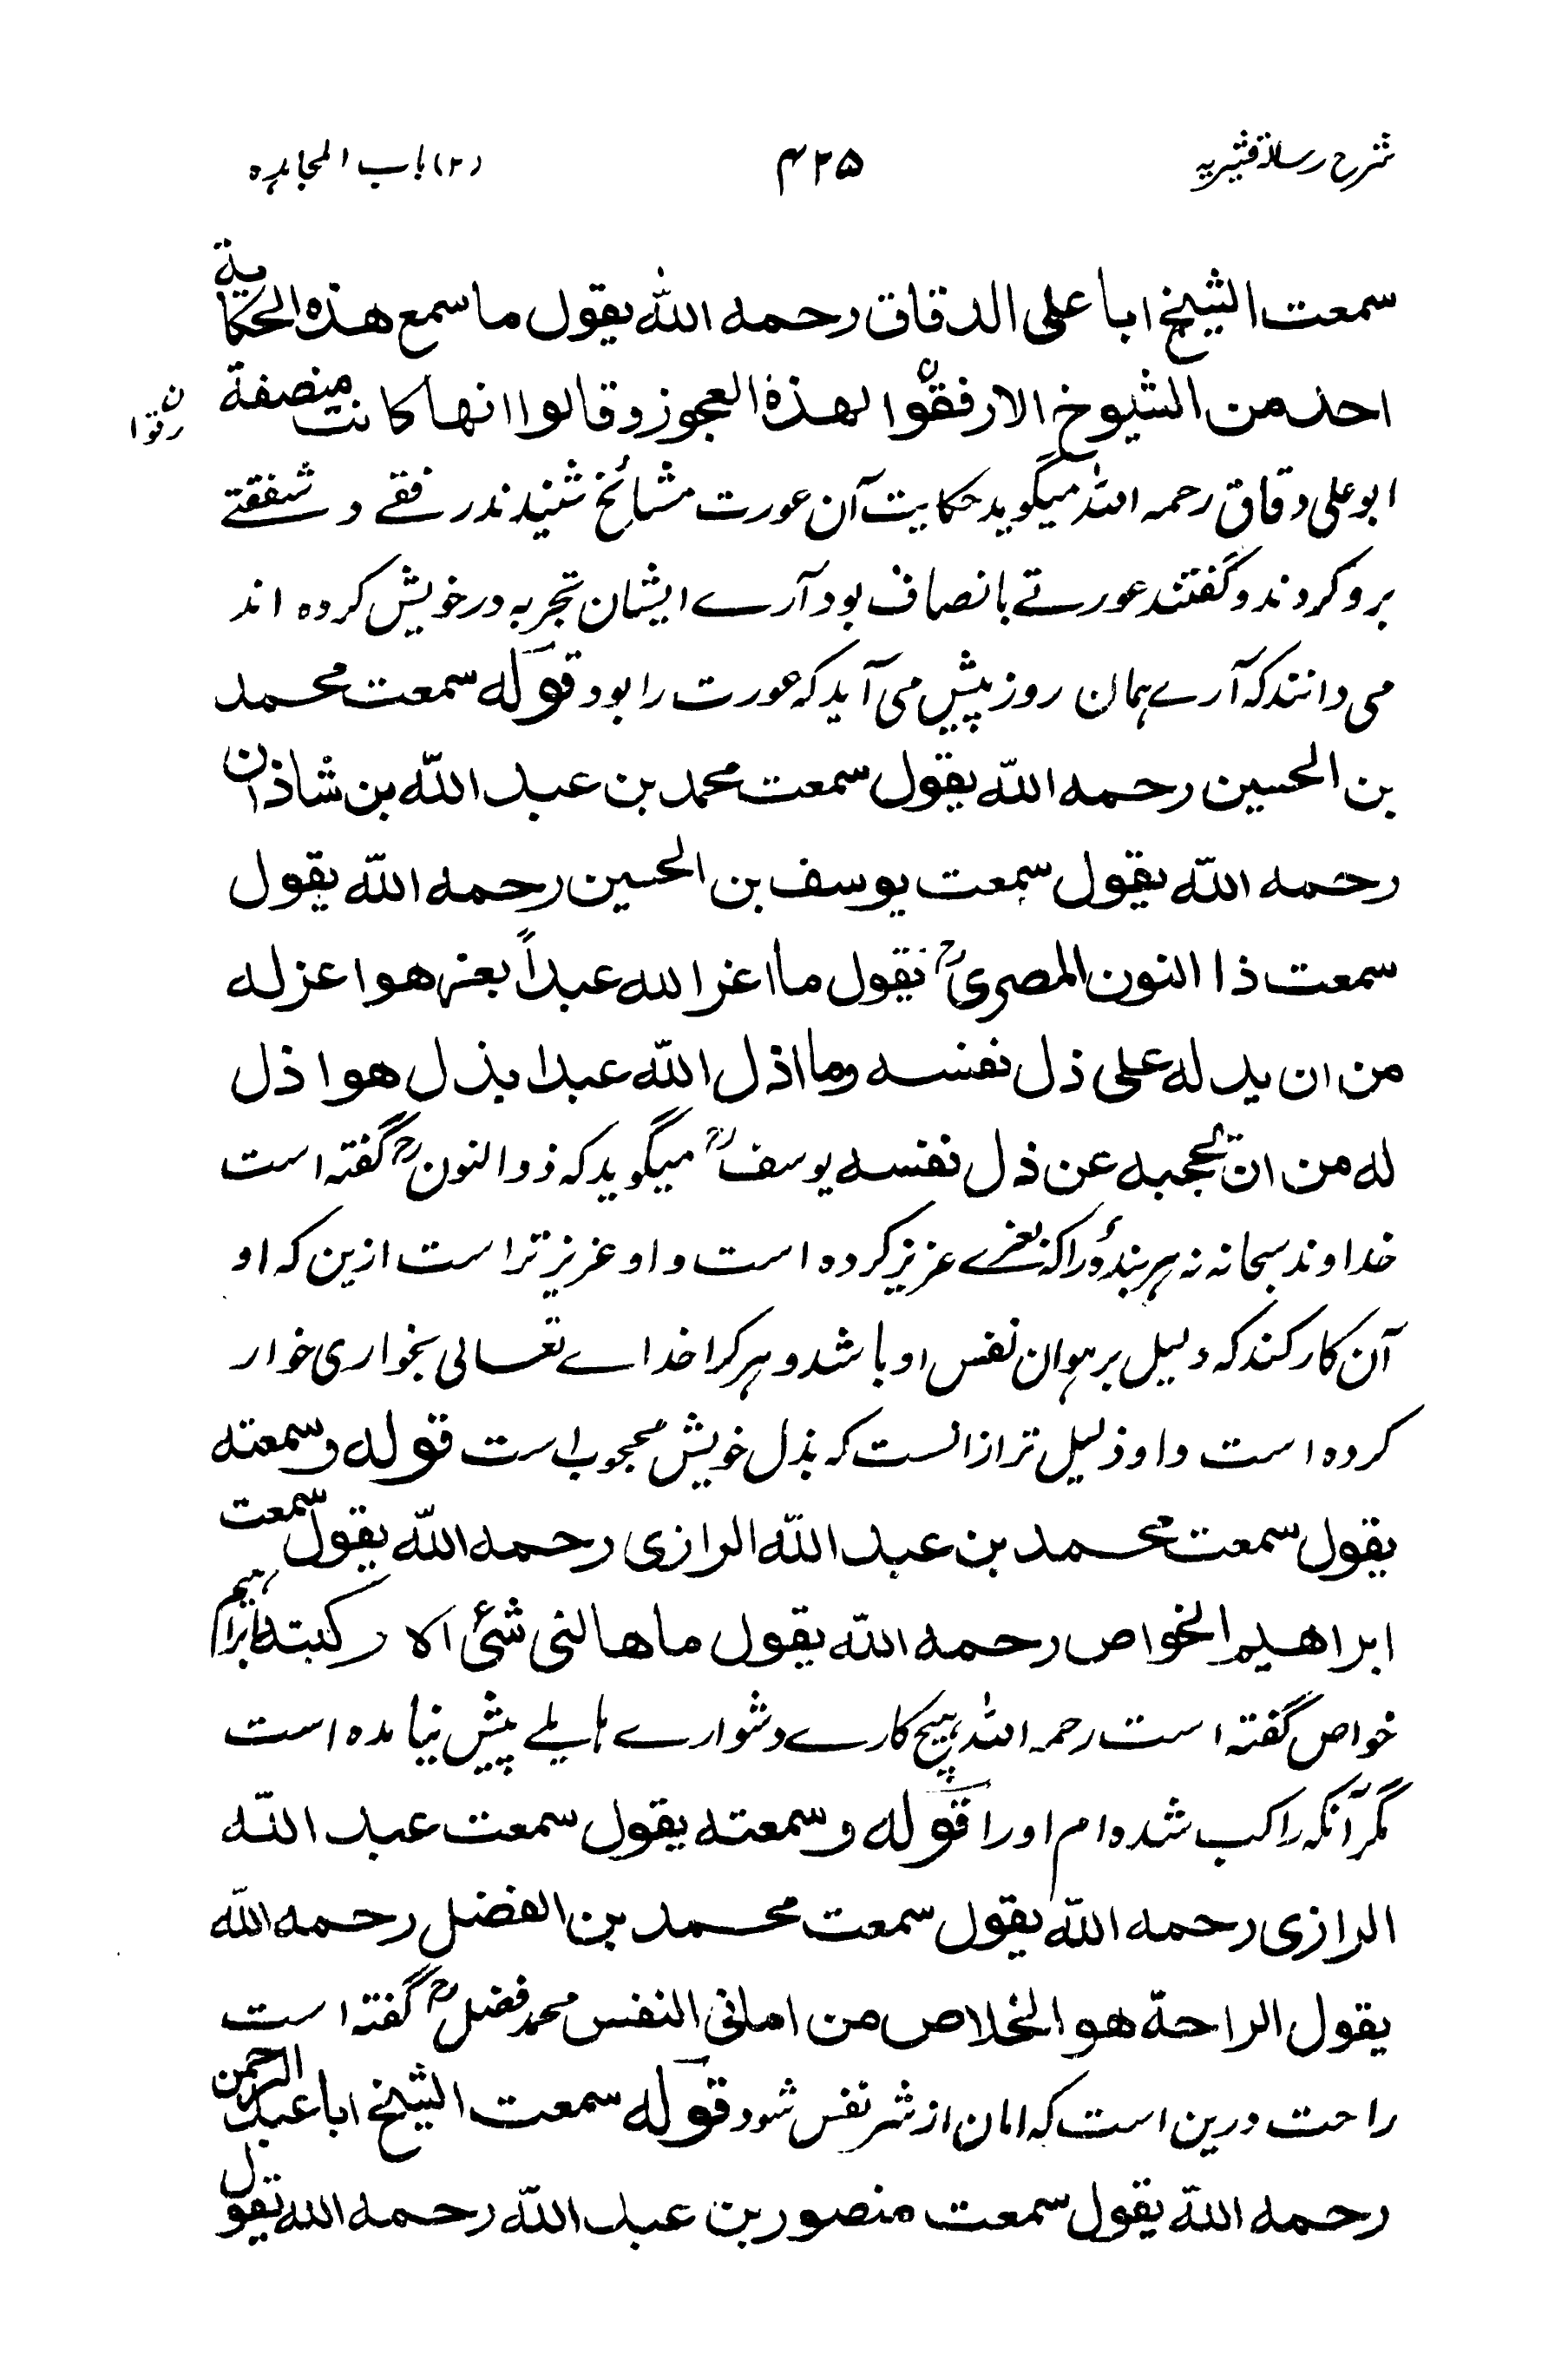 شرح رسالۂ قشیریہ ۴۲۵ (۲) باب المجاہدہ
سمعت الشیخ ابا علی الدقاق رحمه الله یقول ما سمع هذه الحکایة
احد من الشیوخ الا رفقوا لهذه العجوز وقالوا انها کانت منصفة
ن رقوا
ابو علی دقاق رحمہ اللہ میگوید حکایت آن عورت مشائخ شنیدند رفقے و شفقتے
برو کردند و گفتند عورتے بانصاف بود آرے ایشان تجربہ در خویش کردہ اند
می دانند کہ آرے ہمان روز پیش می آید کہ عورت را بود قوله سمعت محمد
بن الحسین رحمه الله یقول سمعت محمد بن عبد الله بن شاذان
رحمه الله یقول سمعت یوسف بن الحسین رحمه الله یقول
سمعت ذا النون المصریؒ یقول ما اعز الله عبداً بعز هو اعز له
من ان یدله علی ذل نفسه وما اذل الله عبدا بذل هو اذل
له من ان یحجبه عن ذل نفسه یوسفؒ میگوید کہ ذوالنونؒ گفتہ است
خداوند سبحانہ نہ ہر بندۂ را کہ بعزے عزیز کردہ است و او عزیز تر است ازین کہ او
آن کار کند کہ دلیل بر ہوان نفس او باشد و ہر کرا خداے تعالی بخواری خوار
کردہ است و او ذلیل تر ازانست کہ بذل خویش محجوب است قوله وسمعته
یقول سمعت محمد بن عبد الله الرازی رحمه الله یقول سمعت
ابراهیم الخواص رحمه الله یقول ما هالنی شئ الا رکبته ابراہیم
خواص گفتہ است رحمہ اللہ ہیچ کارے دشوارے ہایلے پیش نیامدہ است
مگر آنکہ راکب شدہ ام او را قوله وسمعته یقول سمعت عبد الله
الرازی رحمه الله یقول سمعت محمد بن الفضل رحمه الله
یقول الراحة هو الخلاص من امانی النفس محمد فضلؒ گفتہ است
راحت درین است کہ امان از شر نفس شود قوله سمعت الشیخ ابا عبد الرحمن
رحمه الله یقول سمعت منصور بن عبد الله رحمه الله یقول